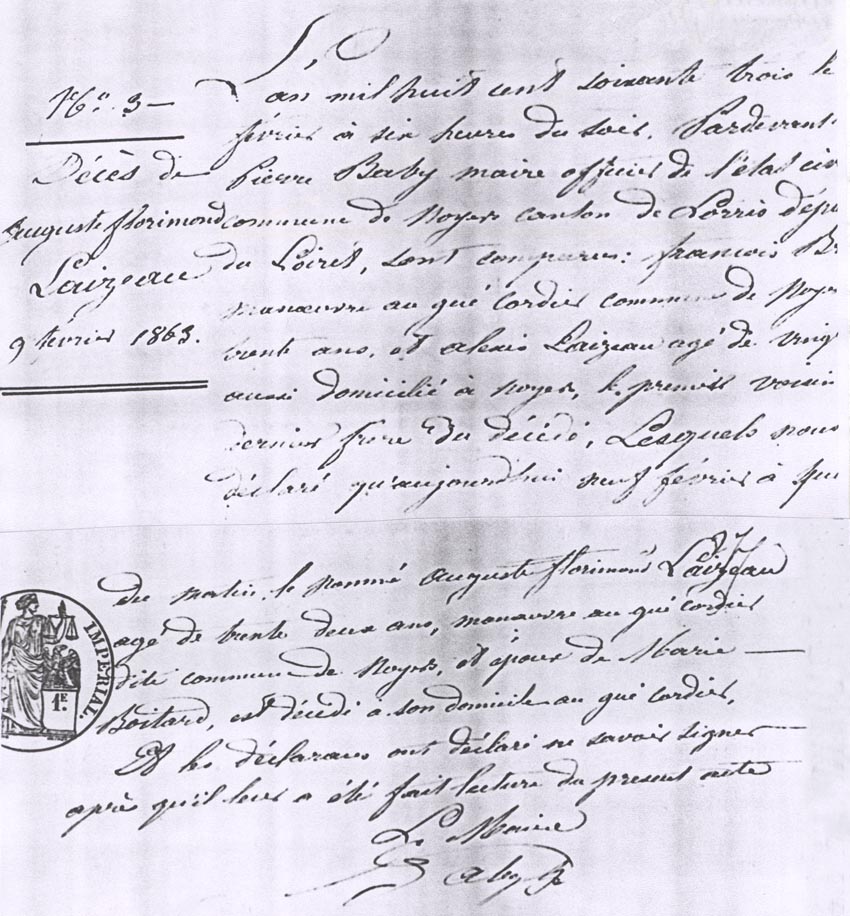 N°. 3
Décès de
Auguste florimond
Laizeau
9 février 1863.
L'an mil huit cent soixante trois le
février à six heures du soir. Pardevant
Pierre Baby maire officier de l'état civ
commune de Noyers canton de Lorris dépa
du Loiret, sont comparus: francois B
manœuvre au gué cordier commune de Noyers
trente ans, et alexis Laizeau agé de ving
aussi domicilié à Noyers, le premier voisin
dernier frère du décédé, Lesquels nous
déclaré qu'aujourd'hui neuf février à
du matin, le nommé Auguste florimond Laizeau
agé de trente deux ans, manœuvre au gué cordier
dite commune de Noyers, et époux de Marie
Boitard, est décédé à son domicile au gué cordier.
Et les déclarans ont déclaré ne savoir signer
après qu'il leur a été fait lecture du present acte
Le Maire
Baby
IMPÉRIAL.
1E.